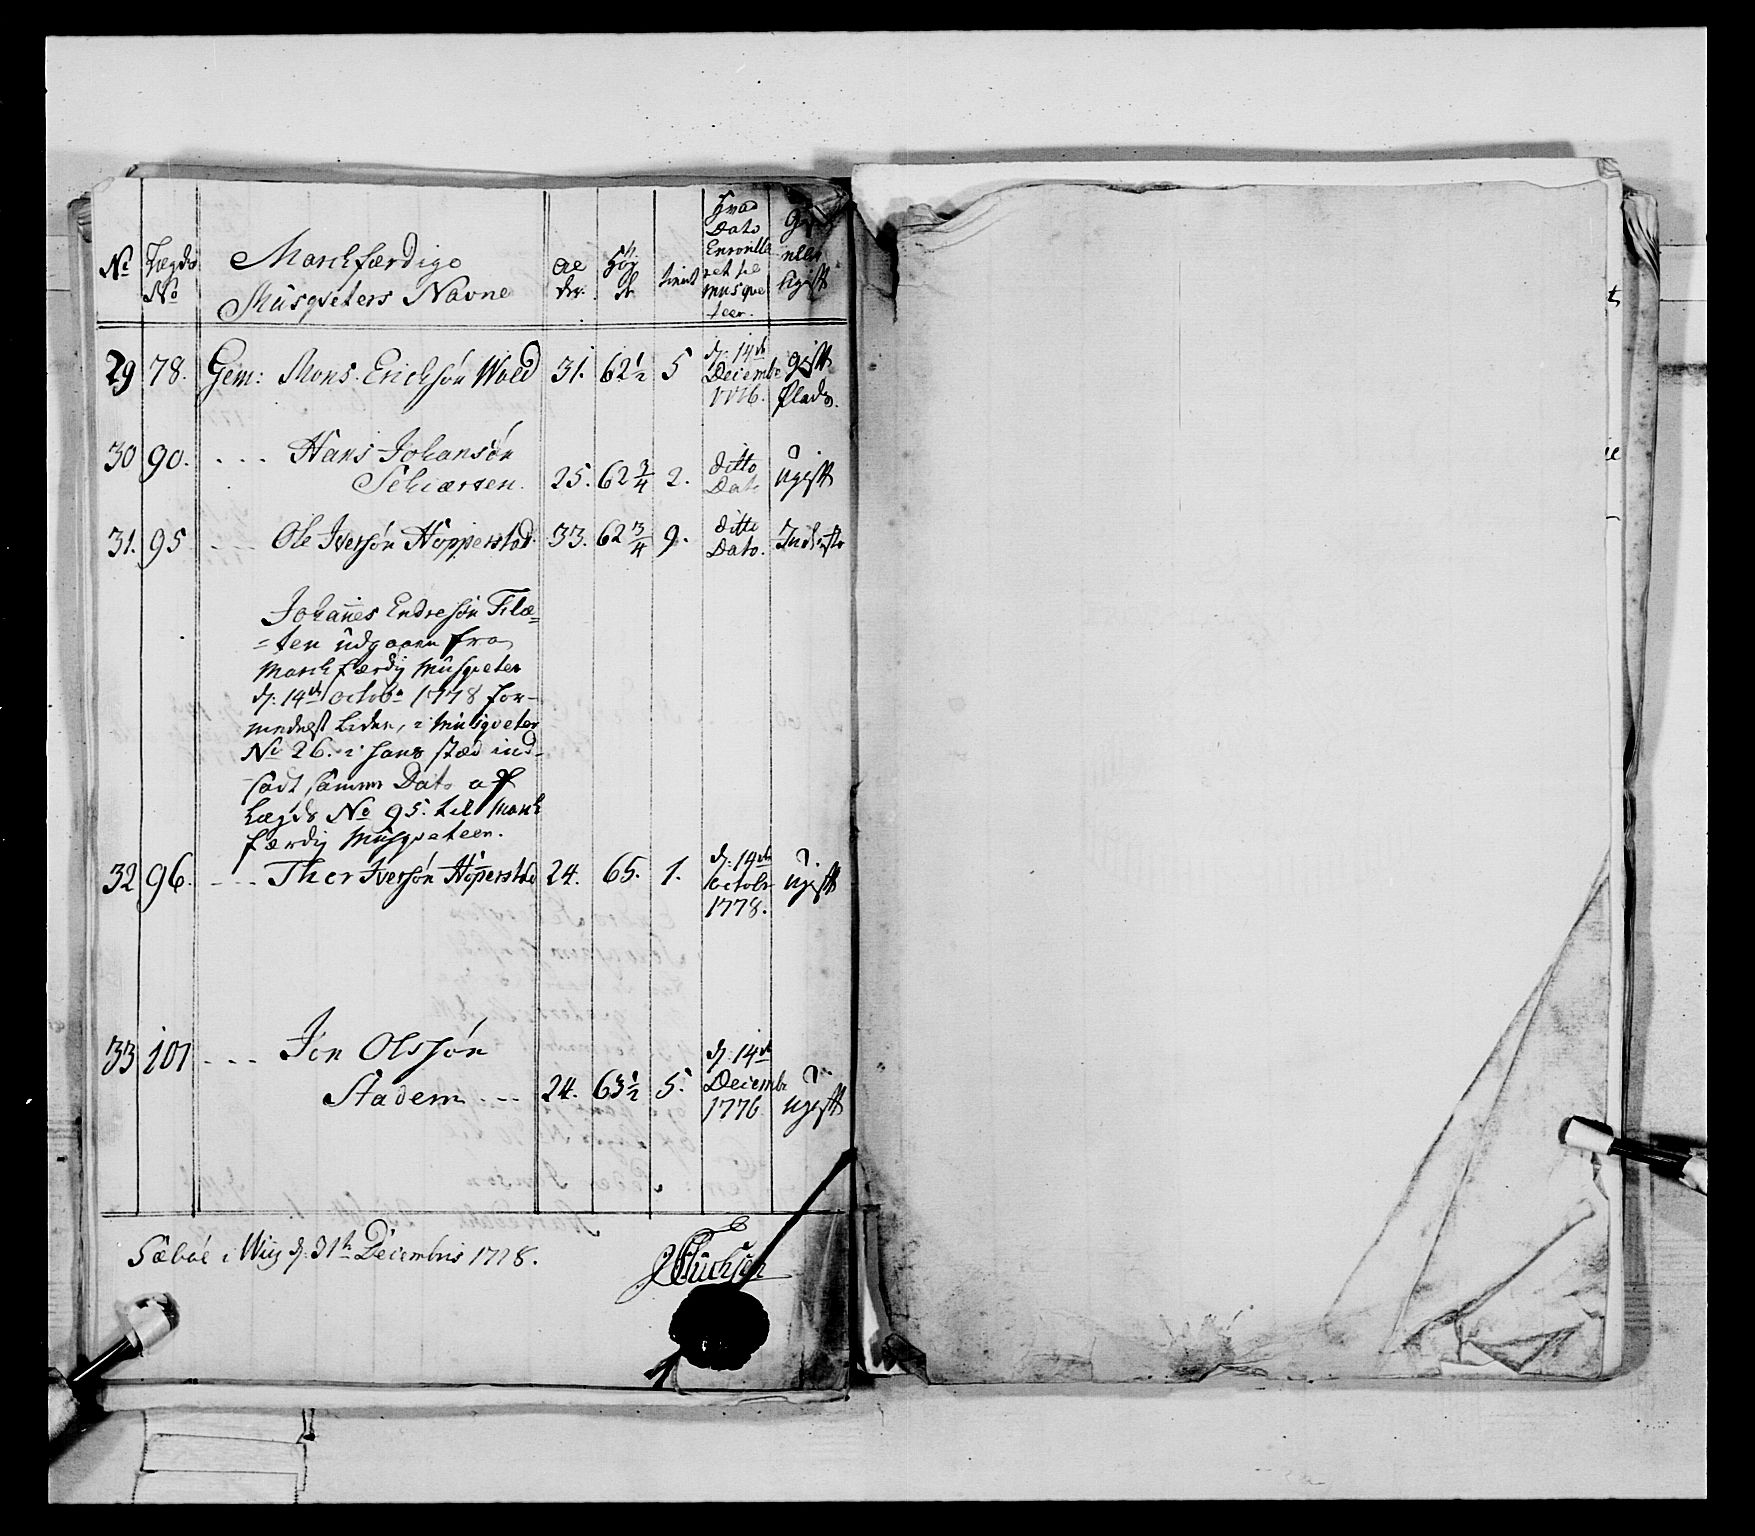 No
Lægds
No
Marchfærdige
Musqveters Navne
Al
der.
Høy
de
tient
Hvad
Dato
Enroulle
ret til
Musqve
teer.
Gift
eller
Ugift
29 78. Gem: Mons Erichsøn Wold 31. 62½ 5 d: 14de Decembr 1776. gift Plads.
30 90. - - - Hans Johansøn
25. 62¾ 2. ditto Dato ugift
31. 95 - - - Ole Iversøn Hopperstad 33. 62¾ 9. ditto Dato. Inderste
Johannes Endresøn Filæ=
=ten udgaaen fra
March færdig Musqveter
d: 14de octobr 1778 for-
medelst Liden, i Musqveter
No 26. i hans stæd ind-
sadt samme Dato af
Lægds No 95. til March
færdig Musqveteer.
32 96. - - - Thor Iversøn Hoperstad 24. 65. 1. d: 14de octobr 1778. ugift
33 101 - - - Jon Olssøn
Stadem - - - 24. 63½ 5. d: 14de Decembr 1776 ugift
Sæbøe i Wiig d: 31te Decembris 1778.